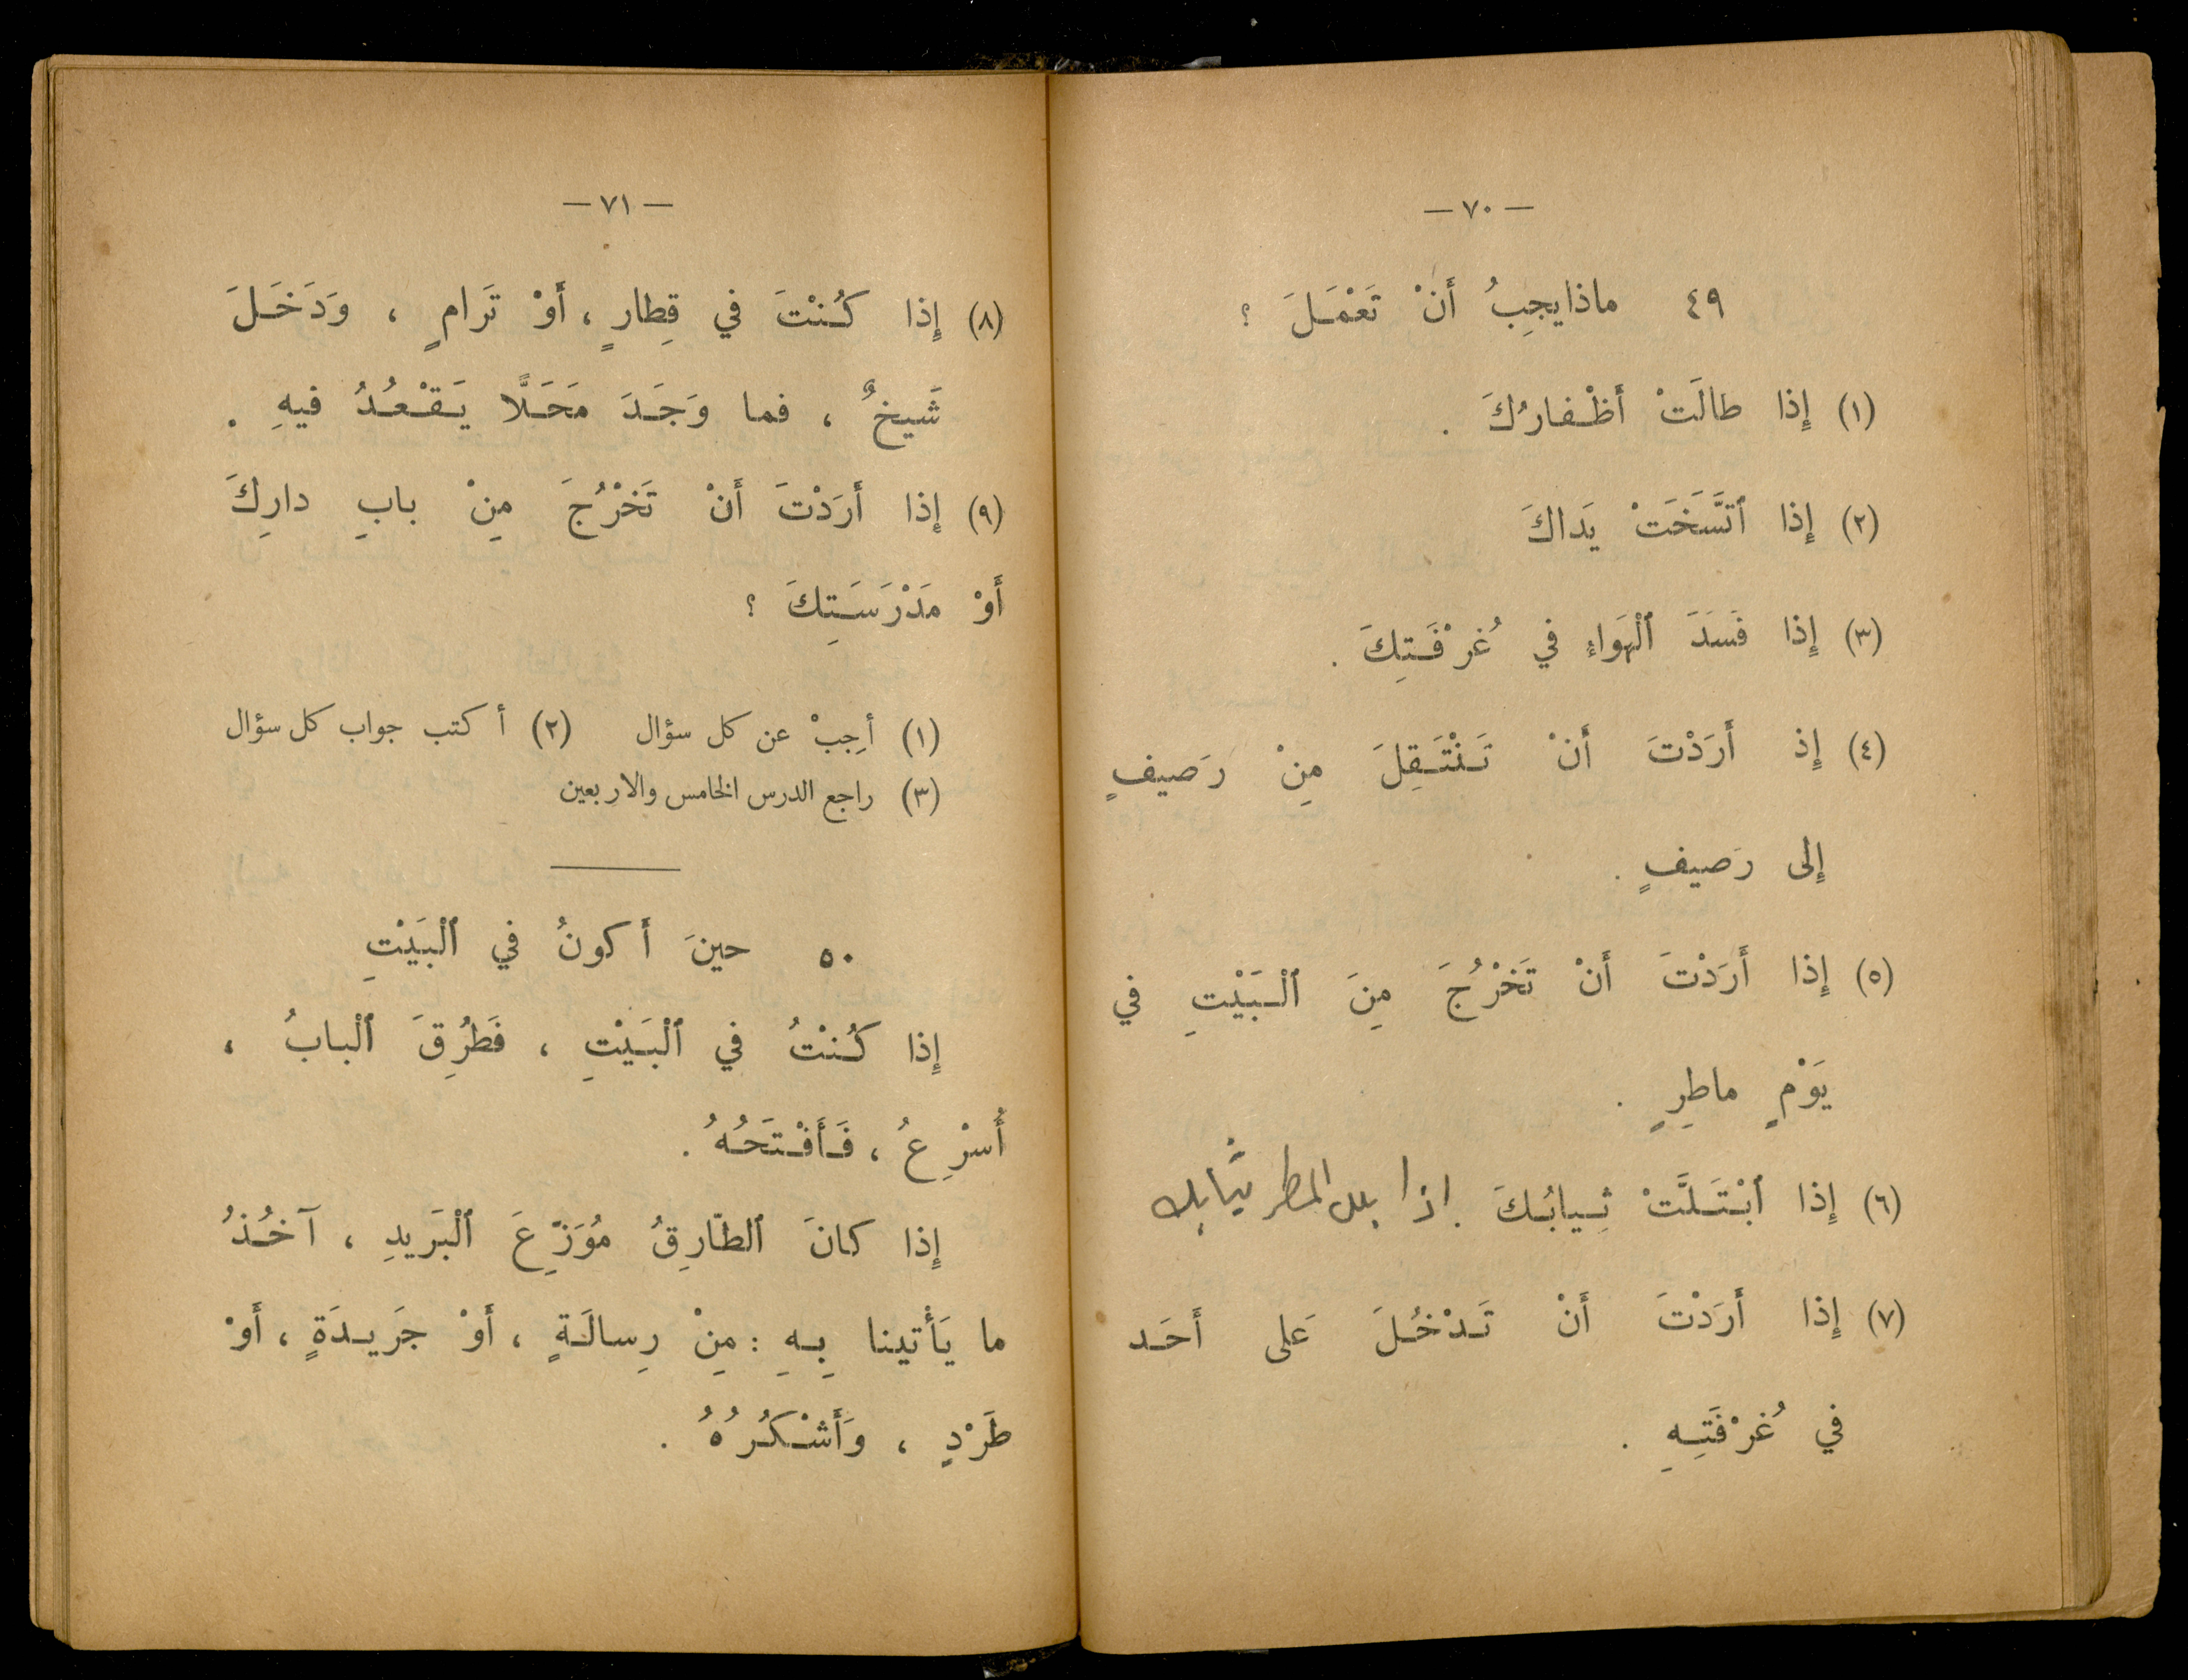 — ٧٠ —
٤٩ ماذا يجِبُ أَنْ تَعْمَلَ ؟
(١) إِذا طالَتْ أَظْفارُكَ .
(٢) إِذا ٱتَّسَخَتْ يَداكَ
(٣) إِذا فَسَدَ ٱلْهَواءِ في غُرْفَتِكَ .
(٤) إِذ أَرَدْتَ أَنْ تَنْتَقِلَ مِنْ رَصيفٍ
إِلى رَصيفٍ .
(٥) إِذا أَرَدْتَ أَنْ تَخْرُجَ مِنَ ٱلْبَيْتِ في
يَوْمٍ ماطِرٍ .
(٦) إِذا ٱبْتَلَّتْ ثِيابُكَ . اذا بلل المطر ثيابك
(٧) إِذا أَرَدْتَ أَنْ تَدْخُلَ عَلى أَحَد
في غُرْفَتِهِ .
— ٧١ —
(٨) إِذا كُنْتَ في قِطارٍ ، أَوْ تَرامٍ ، وَدَخَلَ
شَيخٌ ، فما وَجَدَ مَحَلًّا يَقْعُدُ فيهِ .
(٩) إِذا أَرَدْتَ أَنْ تَخْرُجَ مِنْ بابِ دارِكَ
أَوْ مَدْرَسَتِكَ ؟
(١) أجِبْ عن كل سؤال (٢) أكتب جواب كل سؤال
(٣) راجع الدرس الخامس والاربعين
٥٠ حينَ أَكونُ في ٱلْبَيْتِ
إِذا كُنْتُ في ٱلْبَيْتِ ، فَطُرِقَ ٱلْبابُ ،
أُسْرِعُ ، فَأَفْتَحُهُ .
إِذا كانَ ٱلطّارِقُ مُوَزِّعَ ٱلْبَريدِ ، آخُذُ
ما يَأْتينا بِهِ : مِنْ رِسالَةٍ ، أَوْ جَريدَةٍ ، أَوْ
طَرْدٍ ، وَأَشْكُرُهُ .